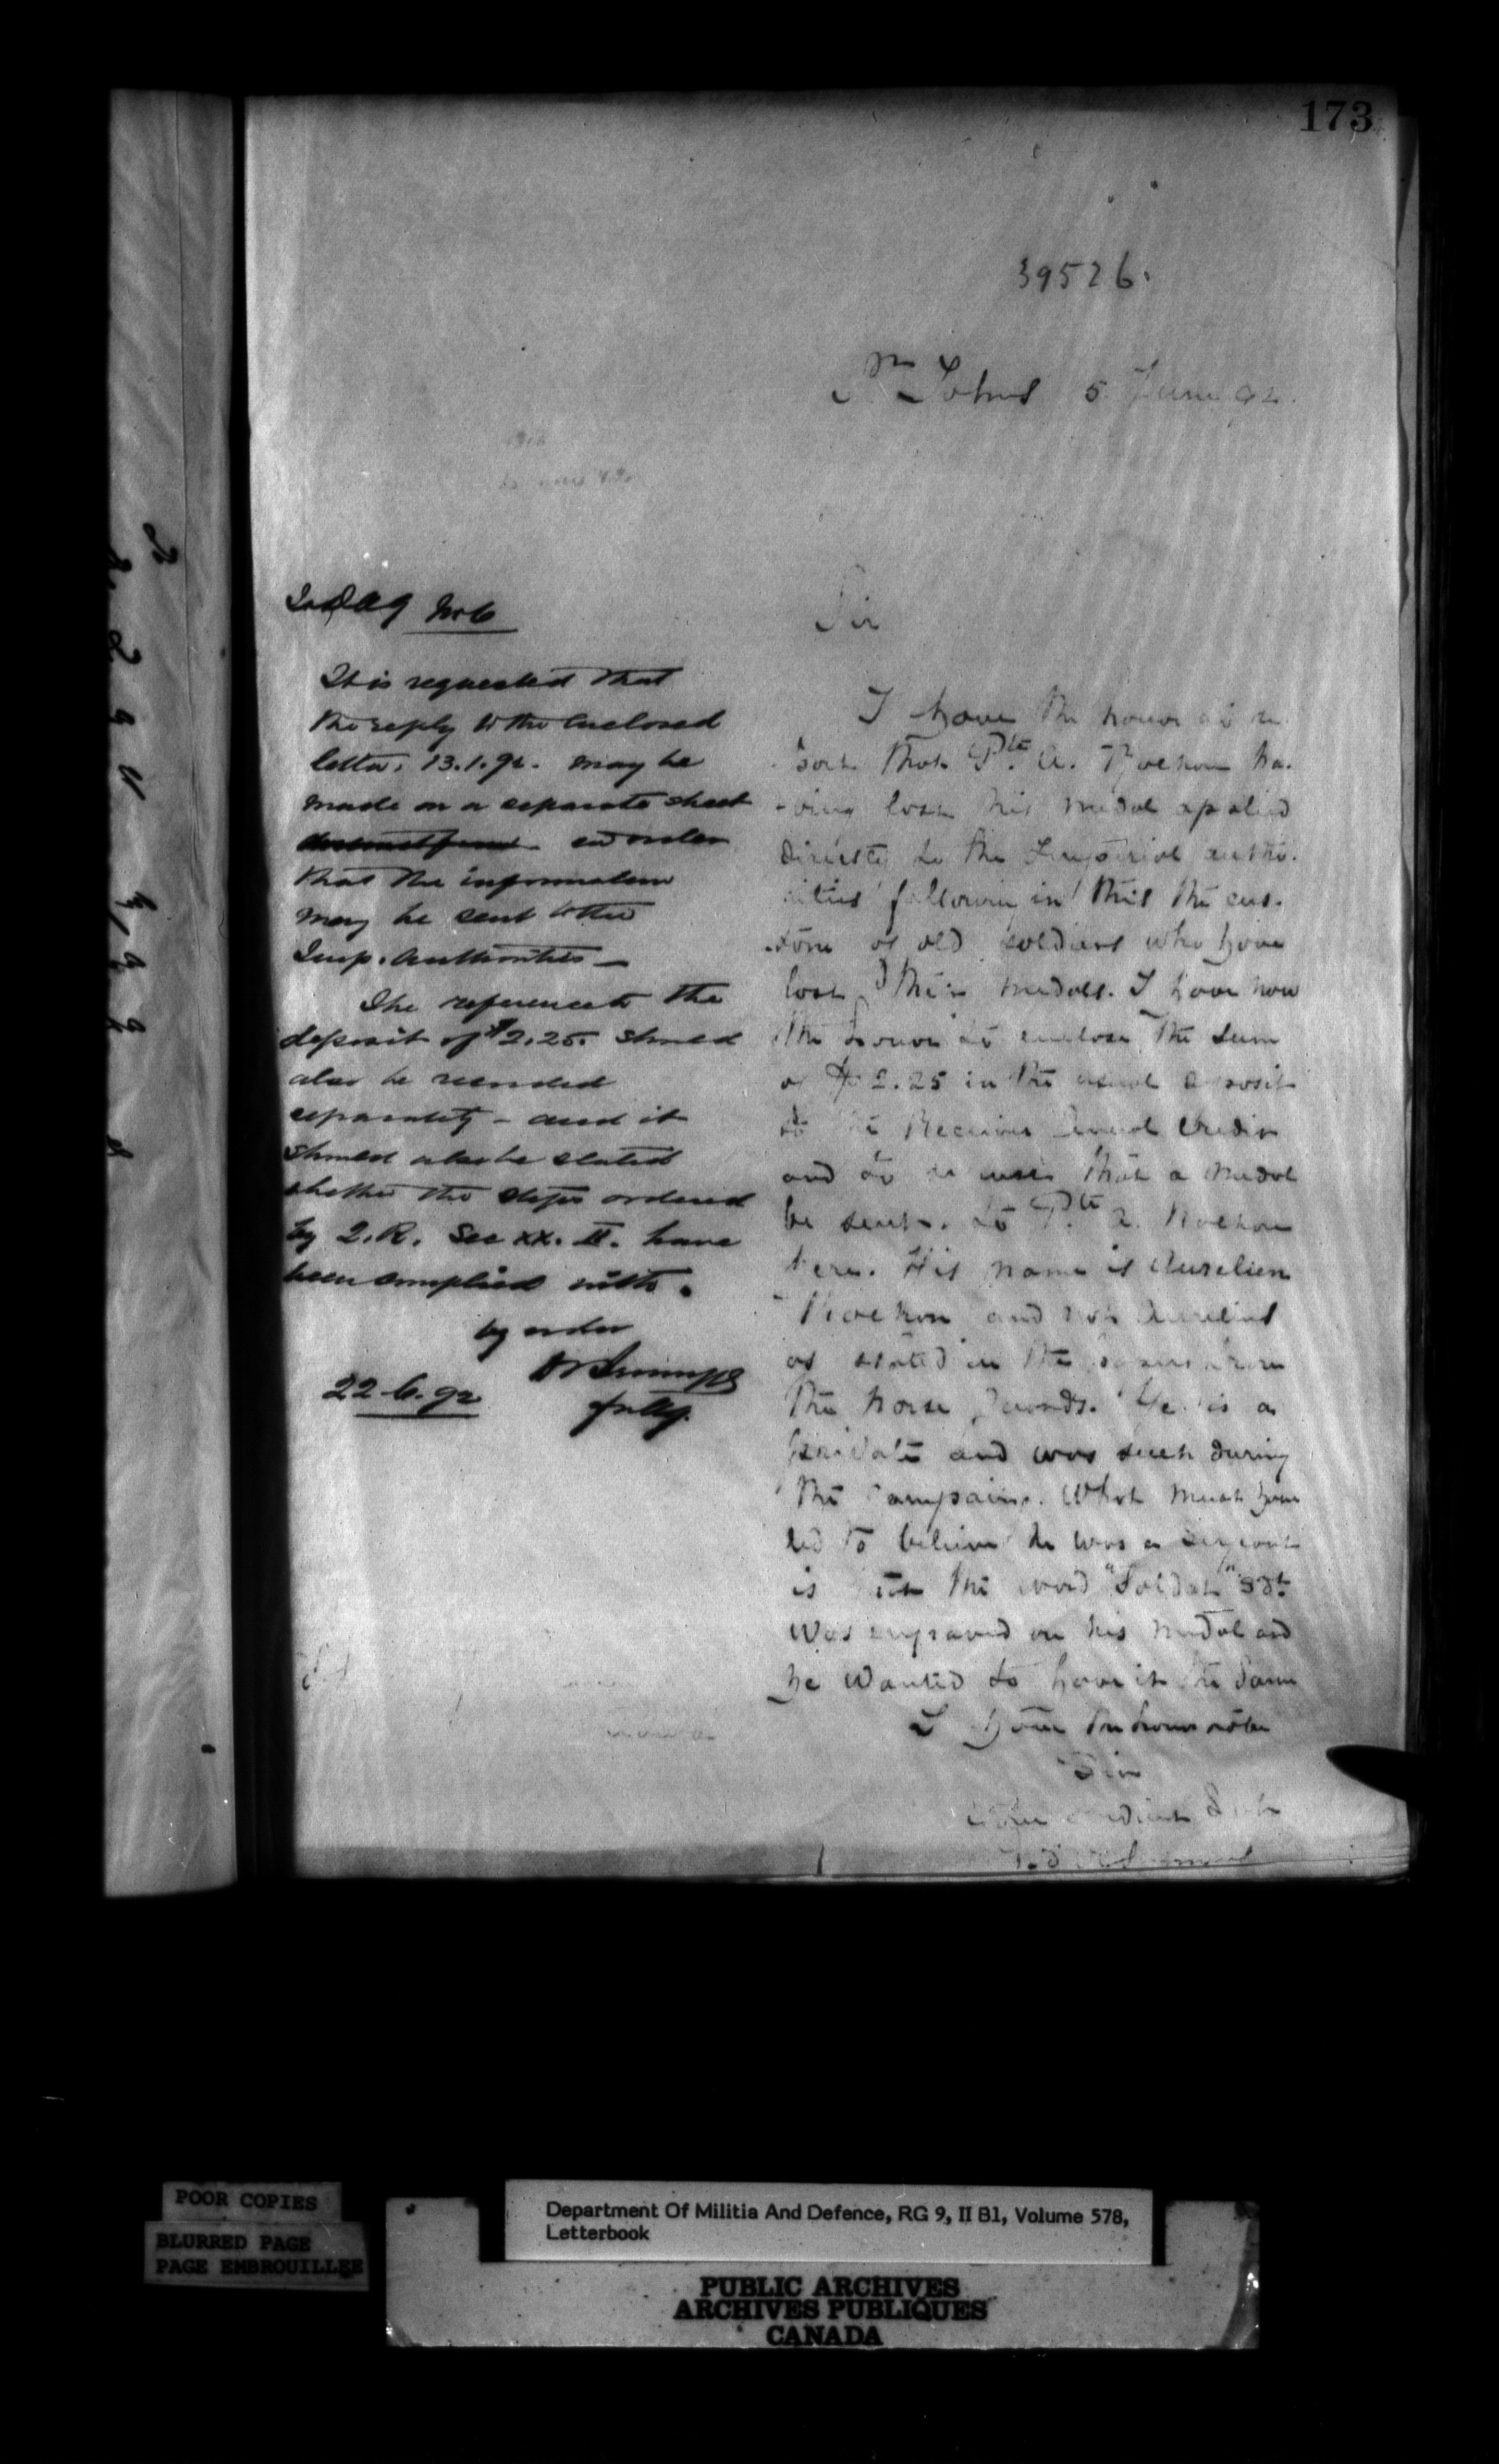 173
39526.
St Johns 5 June 92.
Sir
I have the honor to re
port that Pte. A. Rochon ha-
-ving lost his medal applied
directly to the Imperial autho-
rities following in this the cus-
-tom of old soldiers who have
lost their medals. I have now
the honor to enclose the sum
of $2.25 in the usual deposit
to the Receiver General Credit
and to that a medal
be sent to Pte A. Rochon
here. His name is Aurelien
Rochon and not Aurelius
as stated in the from
the horse Guards. He is a
private and was such during
the campaign. What must have
led to believe he was a sergeant
is that the word "Soldat" "Sdt
was engraved on his medal and
he wanted to have it the same
I have the honor to be
Sir
Your Obedient Servt
DAG No 6
It is requested that
the reply to the enclosed
letter, 13.1.92. may be
made on a separate sheet
in order
that the information
may be sent to the
Imp. Authorities —
The reference to the
deposit of $2.25 should
also be recorded
separately – and it
should also be stated
whether the steps ordered
by Q.R. Sec XX. II. have
been complied with.
by order
22.6.92
POOR COPIES
BLURRED PAGE
PAGE EMBROUILLEE
Department Of Militia And Defence, RG 9, II B1, Volume 578,
Letterbook
PUBLIC ARCHIVES
ARCHIVES PUBLIQUES
CANADA